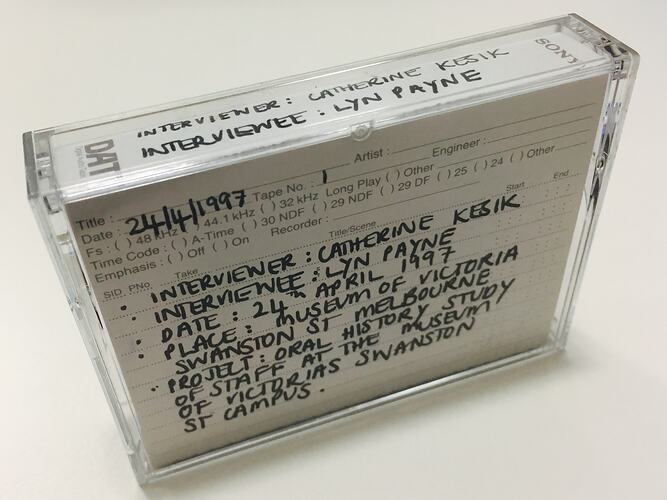 INTERVIEWER : CATHERINE KESIK
INTERVIEWEE : LYN PAYNE
SONY
DAT
Title :
Artist :
Engineer :
Date : 24/4/1997 Tape No. : 1
Long Play ( ) Other
Fs : ( ) 48 kHz ( ) 44.1 kHz ( ) 32 kHz
Time Code : ( ) A-Time ( ) 30 NDF ( ) 29 NDF ( ) 29 DF ( ) 25 ( ) 24 ( ) Other
Emphasis : ( ) Off ( ) On Recorder :
SID PNo. Take Title/Scene Start End
• INTERVIEWER : CATHERINE KESIK
• INTERVIEWEE : LYN PAYNE
• DATE : 24TH APRIL 1997
• PLACE : MUSEUM OF VICTORIA
SWANSTON ST MELBOURNE
• PROJECT : ORAL HISTORY STUDY
OF STAFF AT THE MUSEUM
OF VICTORIAS SWANSTON
ST CAMPUS.